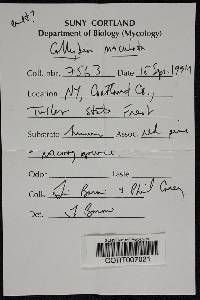 SUNY CORTLAND
Department of Biology (Mycology)
Collybia maculata
Coll. nbr. 7563 Date 15 Sep. 1994
Location NY, Cortland Co.,
Tuller State Forest
Substrate humus Assoc. red pine
+ Norway spruce
Odor Taste
Coll. T. Baroni + Phil
Det. T Baroni
CORT007021